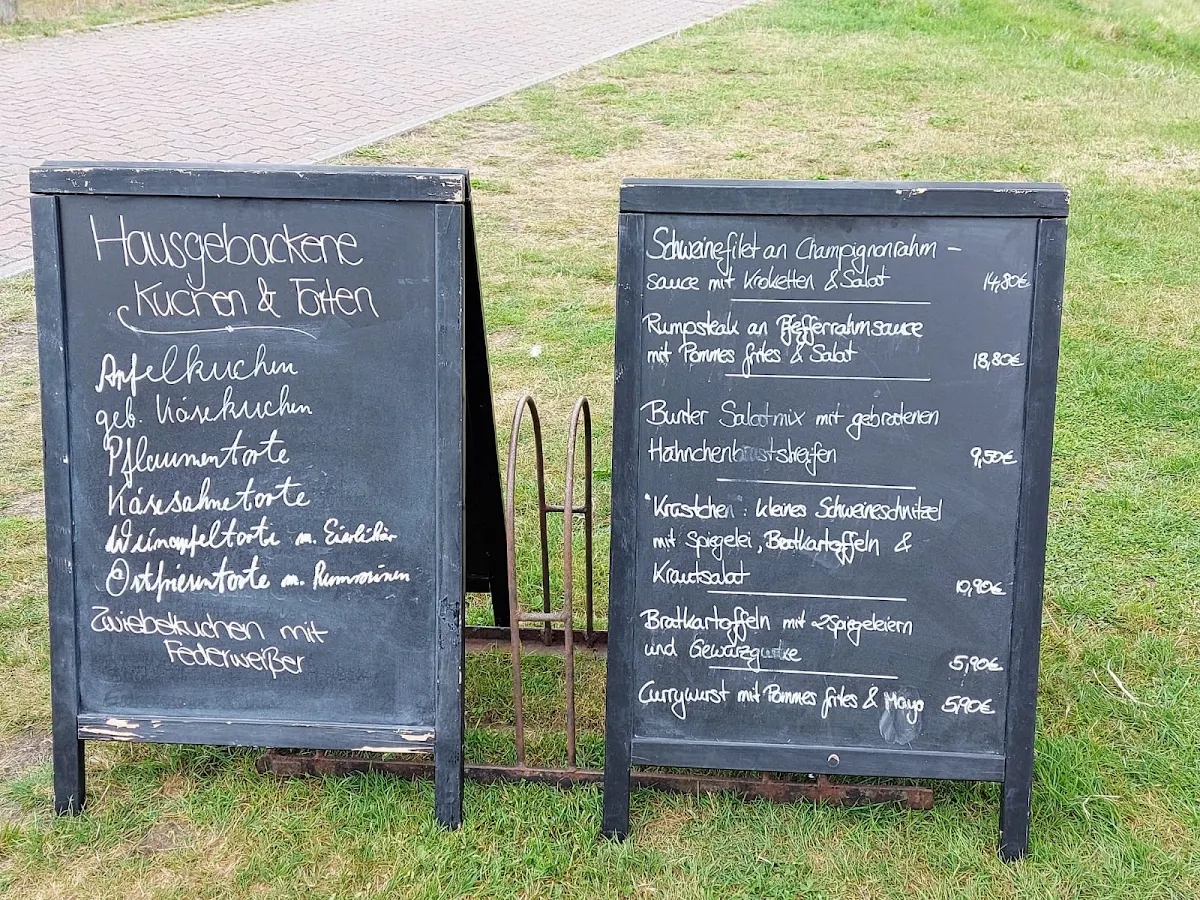 Hausgebackene
Kuchen & Torten
Apfelkuchen
geb. Käsekuchen
Pflaumentorte
Käsesahnetorte
Weinapfeltorte m. Eierlikör
Ostfriesentorte m. Rumrosinen
Zwiebelkuchen mit
Federweißer
Schweinefilet an Champignonrahm -
sauce mit Kroketten & Salat 14,80€
Rumpsteak an Pfefferrahmsauce
mit Pommes frites & Salat 18,80€
Bunter Salatmix mit gebratenen
Hähnchenbruststreifen 9,50€
Krästchen: kleines Schweineschnitzel
mit Spiegelei, Bratkartoffeln &
Krautsalat 10,90€
Bratkartoffeln mit 2 Spiegeleiern
und Gewürzgurke 5,90€
Currywurst mit Pommes frites & Mayo 5,90€